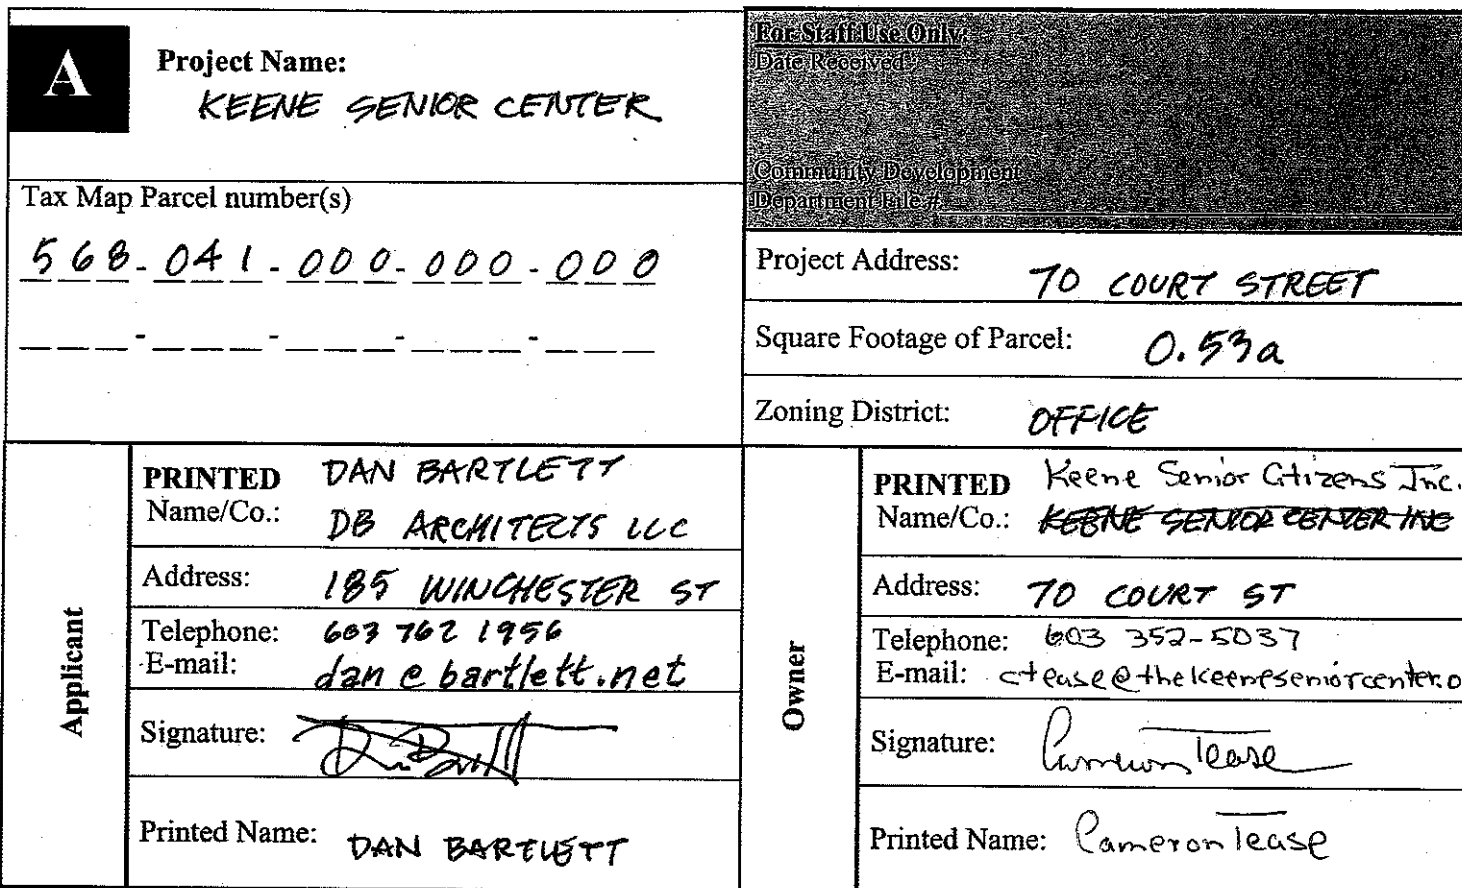 A
Project Name:
KEENE SENIOR CENTER
For Staff Use Only:
Date Received:
Community Development
Department File #
Tax Map Parcel number(s)
568-041-000-000-000
___-___-___-___-___
Project Address: 70 COURT STREET
Square Footage of Parcel: 0.53a
Zoning District: OFFICE
Applicant
PRINTED DAN BARTLETT
Name/Co.: DB ARCHITECTS LLC
Address: 185 WINCHESTER ST
Telephone: 603 762 1956
E-mail: dan@bartlett.net
Signature:
Printed Name: DAN BARTLETT
Owner
PRINTED Keene Senior Citizens Inc.
Name/Co.: KEENE SENIOR CENTER INC
Address: 70 COURT ST
Telephone: 603 352-5037
E-mail: ctease@thekeeneseniorcenter.o
Signature: Cameron Tease
Printed Name: Cameron Tease